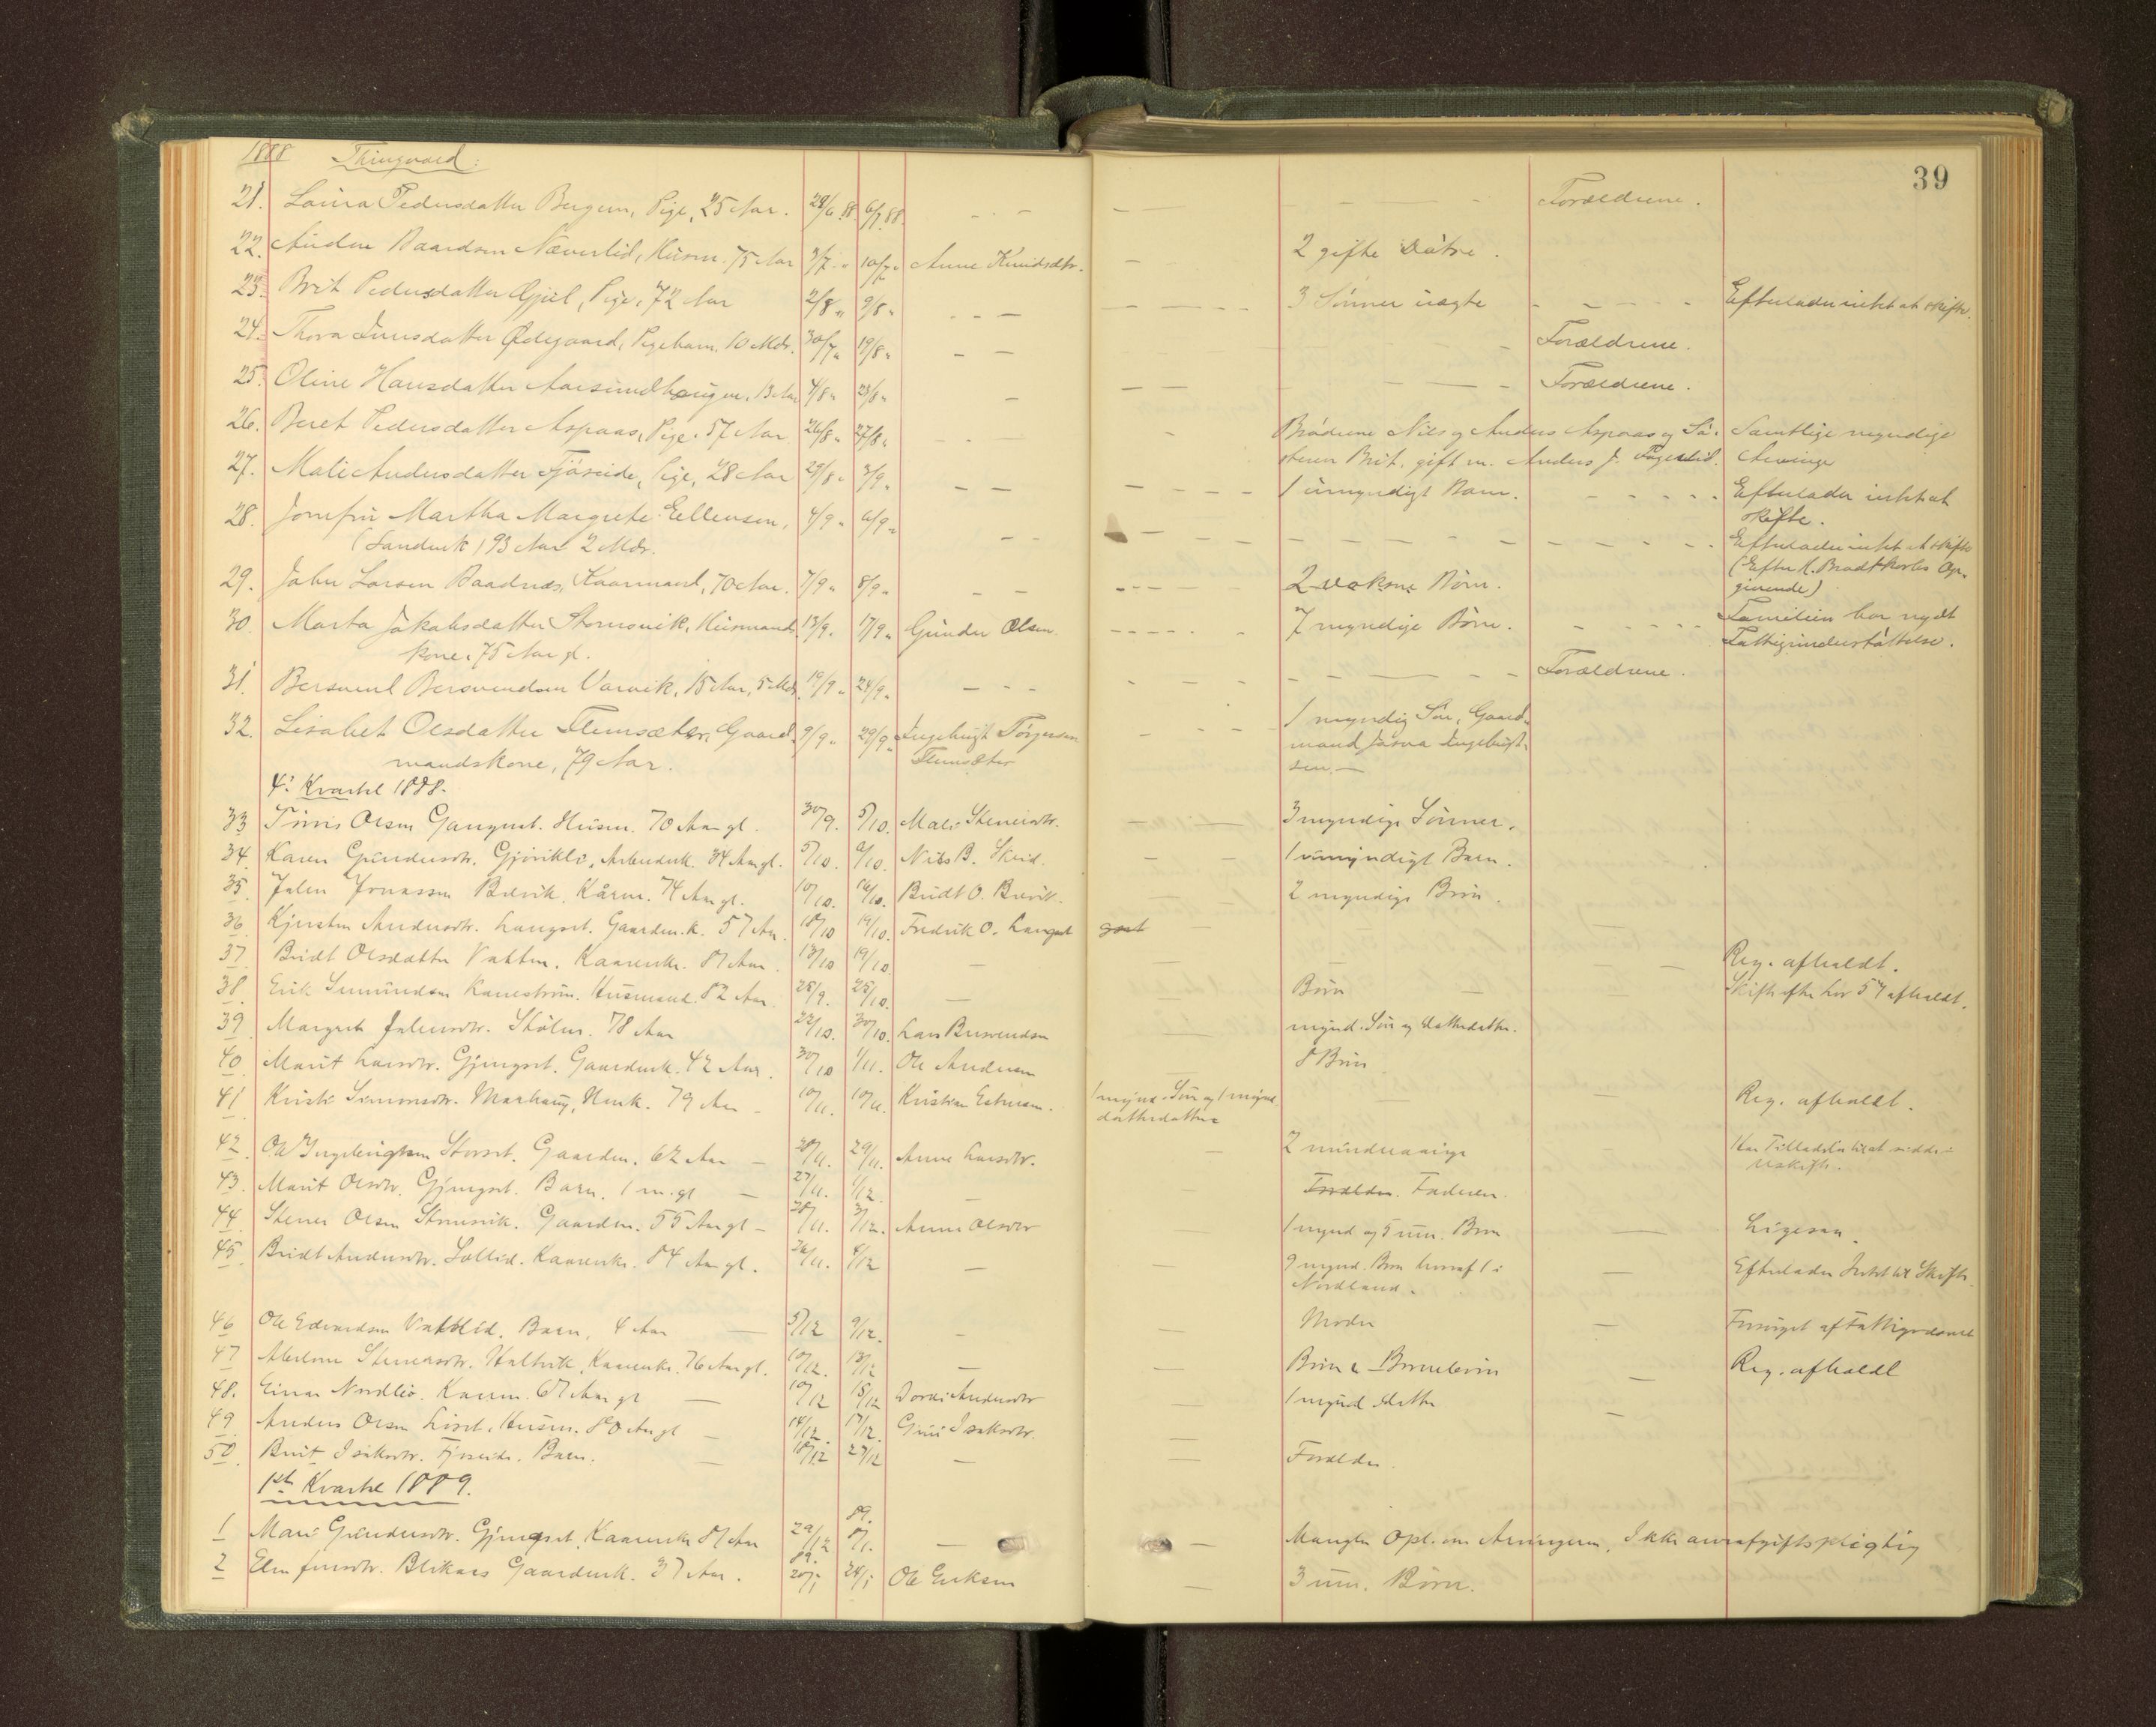 39
1888 Thingvold:
21. Laura Pedersdatter Bergem, Pige, 25 Aar. 28/6 88. 6/7 88. Forældrene.
22. Baardsen Næverlid, Husm. 75 Aar 3/7 " 10/7 " Anne Knudsdtr. 2 gifte Døtre.
23. Brit Pedersdatter Gjul, Pige, 72 Aar 2/8 " 9/8 " 3 Sønner uægte Efterlader intet at skifte.
24. Thora Jensdatter Ødegaard, Pigebarn, 10 Mdr. 30/7 " 19/8 " Forældrene.
25. Oline Hansdatter Aarsundhaugen, 13 Aar 4/8 " 23/8 " Forældrene.
26. Beret Pedersdatter Aspaas, Pige, 57 Aar 26/8 " 27/8 " Brødrene Nils og Anders Aspaas og Sø- Samtlige myndige
steren Brit, gift m. Anders J. Fagerlid. Arvinge
27. Mali Andersdatter Fjøseide, Pige, 28 Aar 29/8 " 3/9 " 1 umyndigt Barn. Efterlader intet at
skifte.
28. Jomfru Martha Margrete Ellensen, 4/9 " 6/9 " Efterlader intet at skifte
(Sandvik) 93 Aar 2 Mdr. (Efter K. Bradtkorbs Op-
givende)
29. John Larsen Baadnæs, Kaarmand, 70 Aar. 7/9 " 8/9 " 2 voksne Børn.
30. Marta Jakobsdatter Stormsvik, Husmands- 13/9 " 17/9 " Gunder Olsen 7 myndige Børn. Familien har nydt
kone, 75 Aar gl. Fattigunderstøttelse.
31. Bersvend Bersvendsen Varvik, 15 Aar, 5 Mdr. 19/9 " 24/9 " Forældrene.
32. Lisabet Olsdatter Flemsæter, Gaard- 9/9 " 29/9 " Ingebrigt Torgersen 1 myndig Søn, Gaard-
mandskone, 79 Aar. Flemsæter mand Ingebrigt-
sen
4. Kvartal 1888.
33 Olsen Gangnæs. Husm. 70 Aar gl. 30/9. 5/10. Mali Steinersdtr. 3 myndige Sønner.
34. Karen Gundersdtr. 34 Aar gl. 5/10. 9/10. Nils B. Skeid. 1 umyndigt Barn.
35. Johan Jonassen Brevik, Kårm. 74 Aar gl. 10/10. 16/10. Brudt O. Brevik. 2 myndige Børn.
36. Kjersten Andersdtr. Langset. Gaardm.k. 57 Aar. 18/10 19/10. Fredrik O. Langset
37. Brudt Olsdatter Vatten. Kaarenke. 81 Aar. 13/10 19/10. Reg. afholdt.
38. Erik Simundsen Kanestrøm. Husmand. 82 Aar. 25/9. 25/10. Børn Skifte efter hr 5/7 afholdt.
39. Margrete Johansdtr. Skålen. 78 Aar 22/10. 30/10. Lars Bersvendsen mynd. Søn og Datterdatter.
40. Marit Larsdtr. Gjengset. Gaardmk. 42 Aar. 30/10 1/11. Ole Andersen 8 Børn
41. Kristi Simonsdtr. Marhaug, Hmk. 79 Aar 10/11. 19/11. Kristian Estensen. 1 mynd. Søn og 1 mynd. Reg. afholdt.
datterdatter
42. Ole Ingebrigtsen Storset. Gaardm. 62 Aar 20/11. 29/11. Anne Larsdtr. 2 mindreaarige Har Tilladelse til at sidde i
Uskifte.
43. Marit Olsdtr. Gjengset. Barn. 1 m. gl 27/11. 1/12. Forældre. Faderen.
44. Stener Olsen Stromsvik. Gaardm. 55 Aar gl 28/11. 3/12. Anne Olsdtr 1 mynd og 5 um. Børn Ligesaa.
45. Brudt Andersdtr. Kaarenke. 84 Aar gl. 26/11. 4/12 9 mynd. Børn hvoraf 1 i Efterlader Intet til Skifte.
Nordland.
46 Ole Edvardsen Vatslid. Barn, 4 Aar 5/12 9/12. Moder Forsørget af Fattigvæsenet
47. Stenersdtr. Haltvik. Kaarenke. 76 Aar gl. 10/12. 13/12 Børn & Børnebørn Reg. afholdt
48. Einar Nordlis. Kaarm. 67 Aar gl 10/12 15/12 Dordi Andersdtr 1 mynd datter
49. Anders Olsen Liset. Husm. 80 Aar gl 14/12. 17/12. Guri Isaksdtr.
50. Brit Isaksdtr. Fjøseide. Barn. 18/12 27/12 Forældre.
1ste Kvartal 1889.
1 Mari Gundersdtr. Gjengset. Kaarenke 81 Aar 29/12 89. 8/1. Mangler Opl. om Arvingerne. Ikke arveafgiftspligtig
2 Jonsdtr. Blikaas Gaardmk. 37 Aar. 89. 20/1 24/1 Ole Eriksen 3 um. Børn.